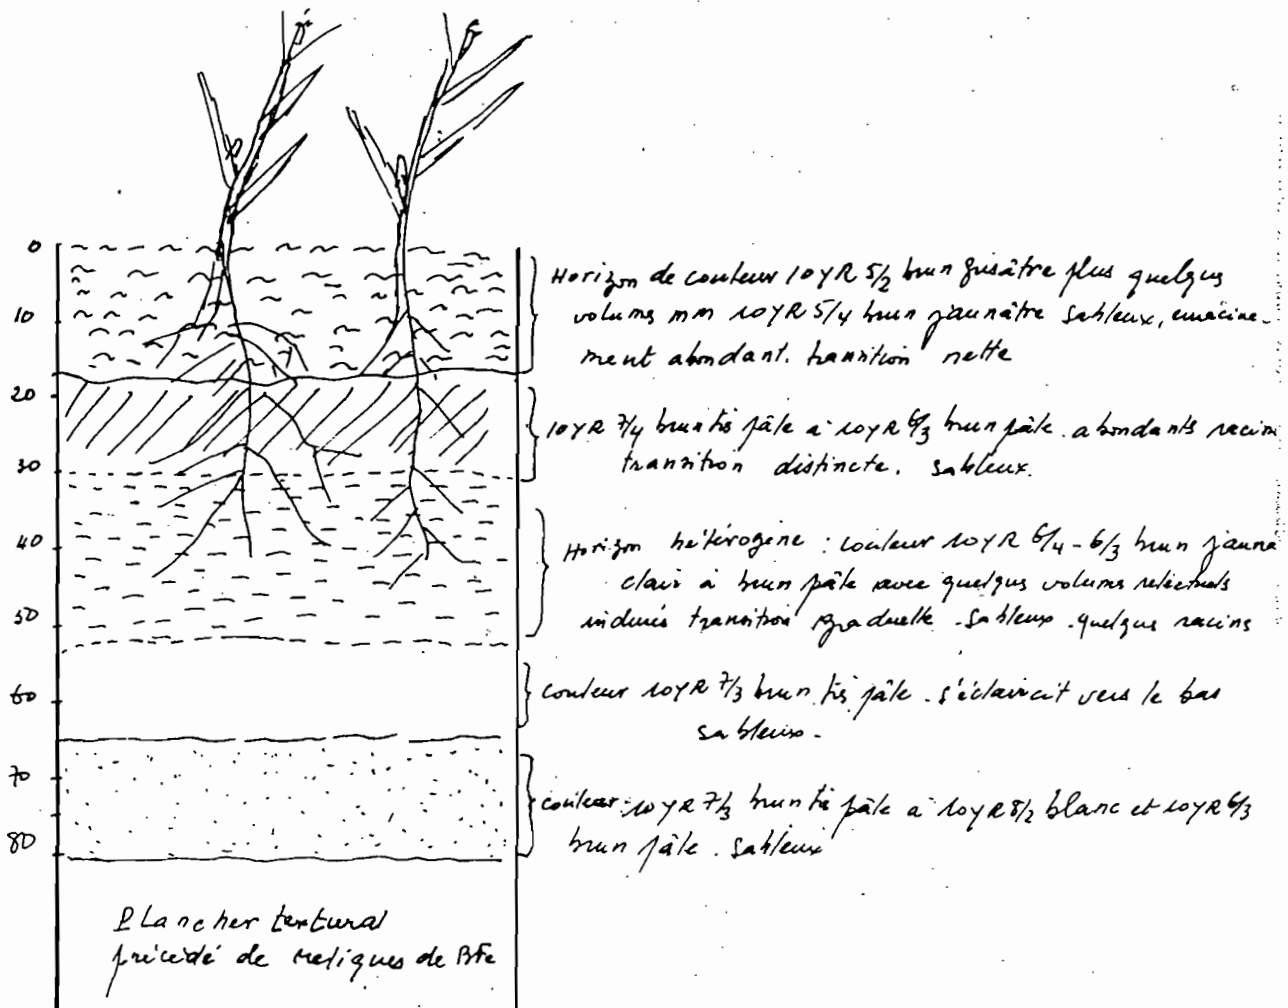 0
Horizon de couleur 10YR 5/2 brun grisâtre plus quelques
volumes mm 10YR 5/4 brun jaunâtre sableux, enracine-
10
ment abondant. transition nette
20
10YR 7/4 brun très pâle à 10YR 6/3 brun pâle. abondants racines
transition distincte. sableux.
30
40
Horizon hétérogène : couleur 10YR 6/4 - 6/3 brun jaune
clair à brun pâle avec quelques volumes
indurés transition graduelle. sableux. quelques racines
50
60
couleur 10YR 7/3 brun très pâle. s'éclaircit vers le bas
sableux.
70
couleur 10YR 7/3 brun très pâle à 10YR 8/2 blanc et 10YR 6/3
brun pâle. sableux
80
Plancher textural
précédé de reliques de BFe